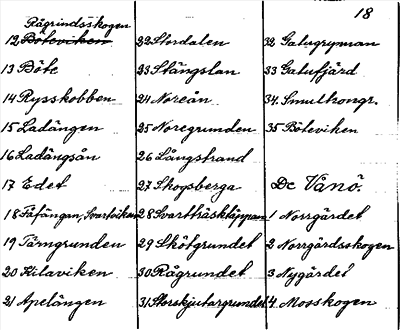 18
Rågrindsskogen
12 Böteviken
13 Böte
14 Rysskobben
15 Ladängen
16 Ladängsån
17 Edet
18 Fäfängan, Svartviken
19 Tärngrunden
20 Kilaviken
21 Apelängen
22 Stordalen
23 Stängslan
24 Noreån
25 Noregrunden
26 Långstrand
27 Skogsberga
28 Svarthäsktäppan
29 Skötgrundet
30 Rågrundet
31 Storskjutargrundet
32 Galugrynnan
33 Galufjärd
34. Smulkongr.
35 Böteviken
De Vänö.
1 Norrgärdet
2 Norrgärdsskogen
3 Nygärdet
4 Mosskogen